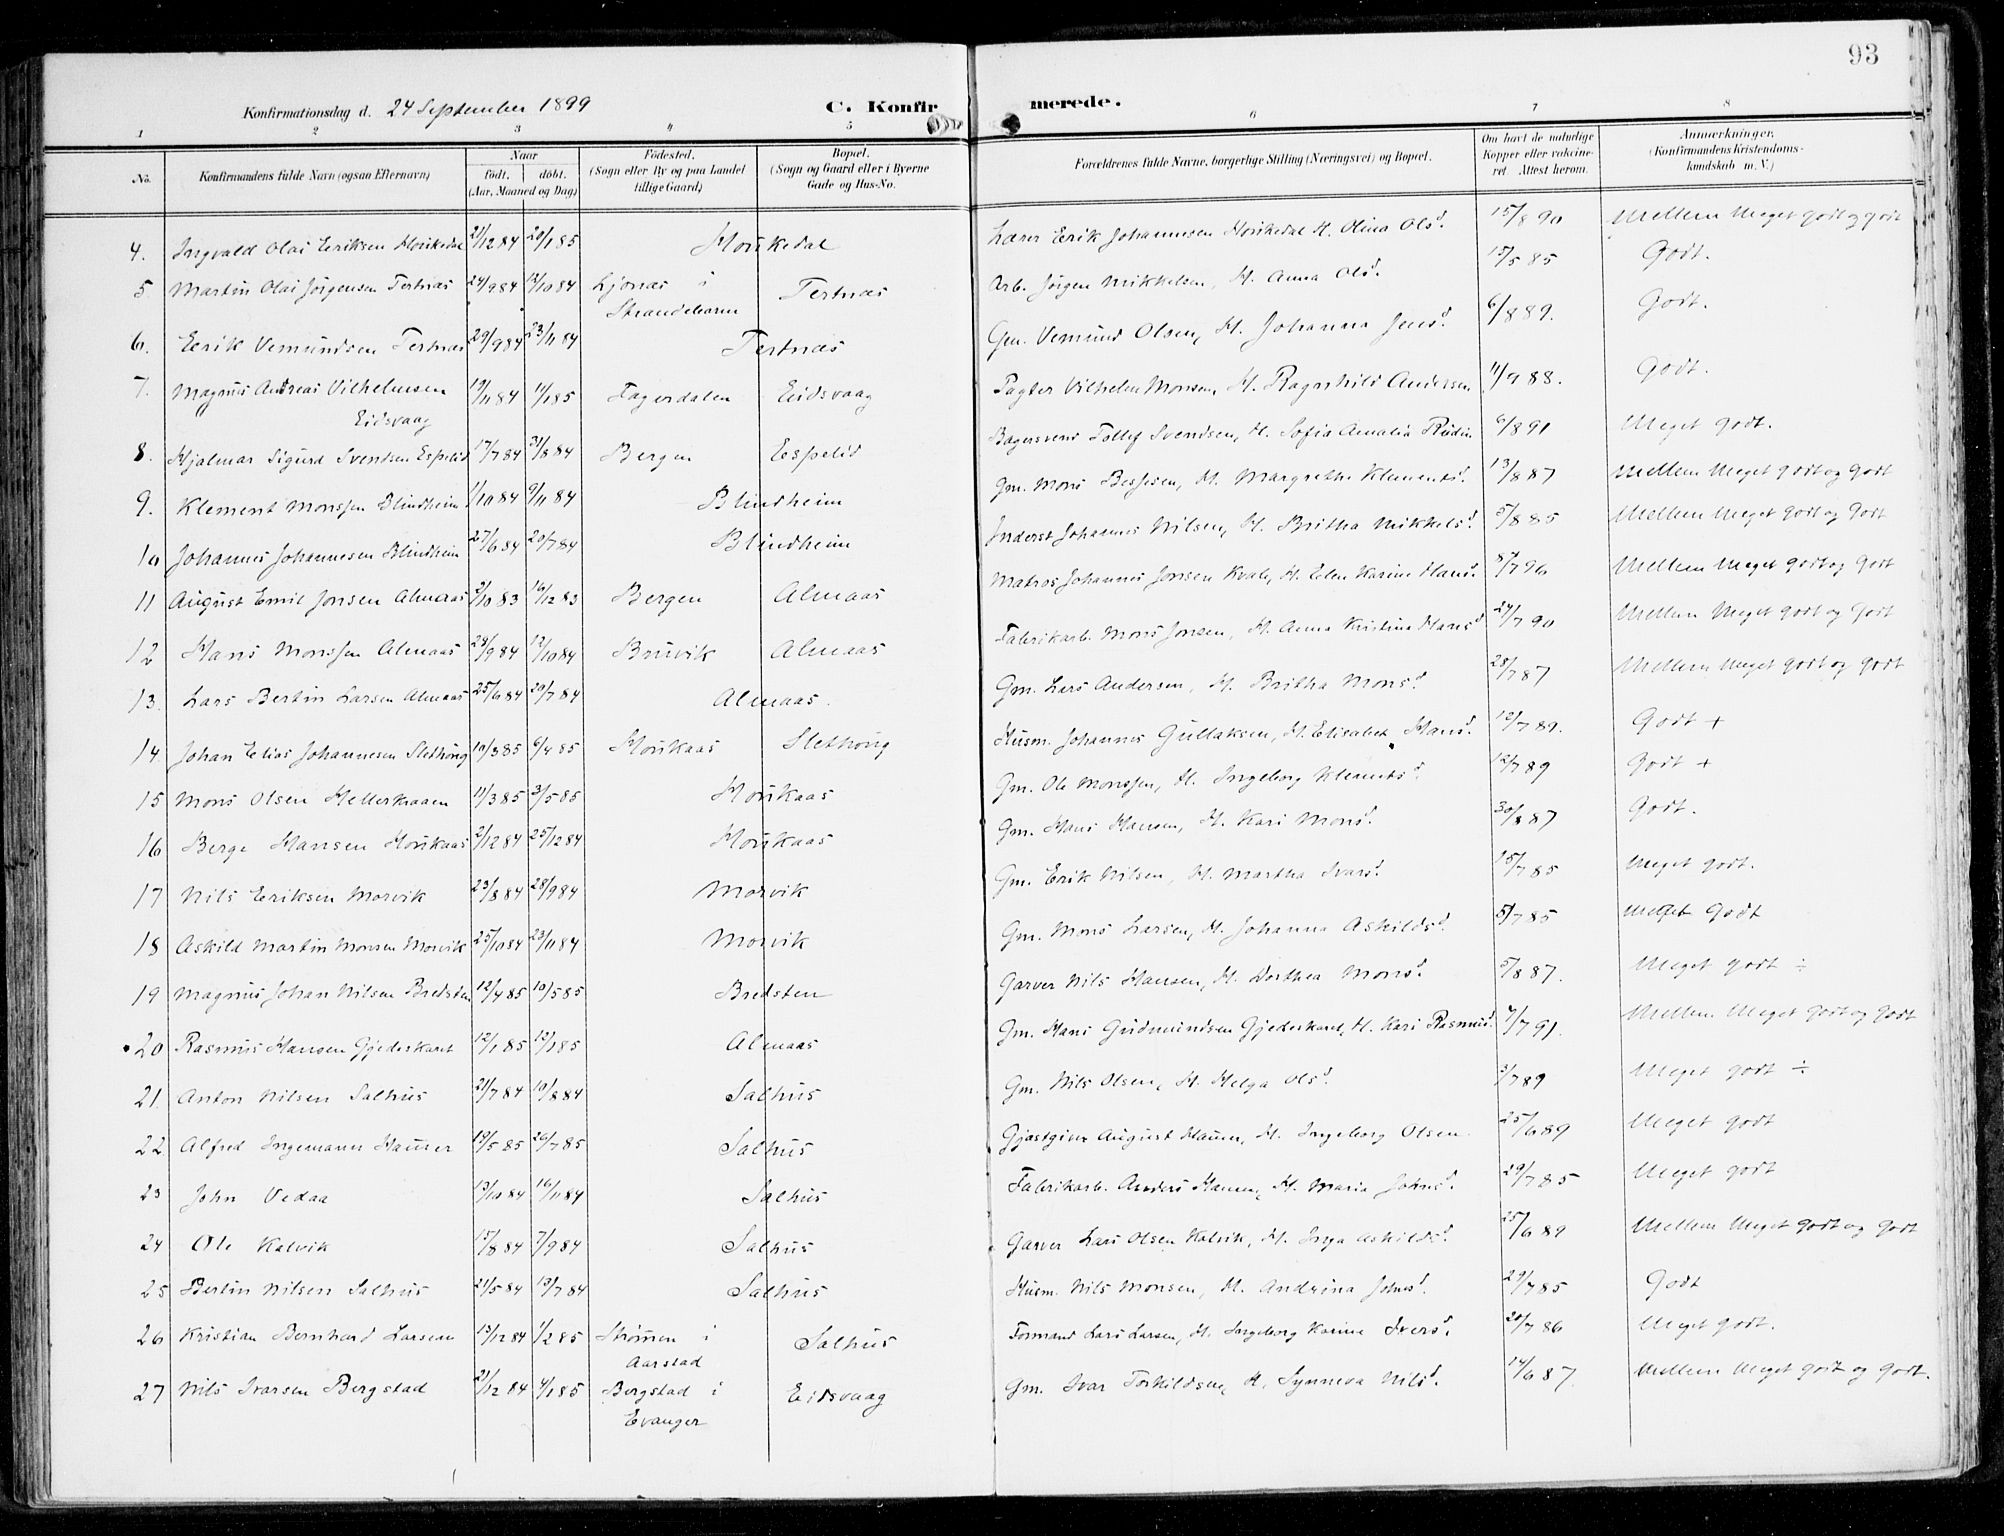 93
Konfirmationsdag d. 24 September 1899 C. Konfirmerede.
1 2 3 4 5 6 7 8
No. Konfirmandens fulde Navn (ogsaa Efternavn) Naar født. døbt. (Aar, Maaned og Dag) Fødested. (Sogn eller By og paa Landet tillige Gaard) Bopæl. (Sogn og Gaard eller i Byerne Gade og Hus-No. Forældrenes fulde Navne, borgerlige Stilling (Næringsvei) og Bopæl. Om havt de naturlige Kopper eller vakcineret. Attest herom. Anmærkninger. (Konfirmandens Kristendomskundskab m. V.)
4. Ingvald Olai Eriksen Hourkedal 21/12 84 20/1 85 Hourkedal Lærer Erik Johannesen Hourkedal H. Olina Olsd. 15/8 90 Mellem Meget godt og godt
5 Martin Olai Jørgensen Tertnæs 24/9 84 12/10 84 Ljonæs i Strandebarm Tertnæs Arb. Jørgen Mikkelsen, H. Anna Olsd. 15/5 85 Godt.
6. Eerik Vemundsen Tertnæs 29/9 84 23/11 84 Tertnæs Gm. Vemund Olsen, H. Johanna Jensd. 6/8 89. Godt.
7. Magnus Andreas Vilhelmsen Eidsvaag 19/11 84 11/1 85 Fagerdalen Eidsvaag Pagter Vilhelm Monsen, H. Ragnhild Andersen 11/9 88. Godt.
8. Hjalmar Sigurd Svendsen Espelid 17/7 84 31/8 84 Bergen Espelid Bagersvend Tollef Svendsen, H. Sofia Amalia Rødin 6/8 91 Meget godt.
9. Klement Monssen Blindheim 1/10 84 9/11 84 Blindheim Gm. Mons Bessesen, H. Margrethe Klementsd. 13/8 87 Mellem Meget godt og godt
10 Johannes Johannesen Blindheim 27/6 84 20/7 84 Blindheim Inderst Johannes Nilsen, H. Britha Mikkelsd. 5/8 85 Mellem Meget godt og Godt
11 August Emil Jonsen Almaas 2/10 83 16/12 83 Bergen Almaas Matros Johannes Jonsen Kvale, H. Elen Karine Hansd. 8/7 96 Mellem Meget godt og Godt
12 Hans Monssen Almaas 24/9 84 12/10 84 Bruvik Almaas Fabrikarb. Mons Jonsen, H. Anna Kristine Hansd. 24/7 90 Mellem Meget godt og Godt
13. Lars Bertin Larsen Almaas 25/6 84 20/7 84 Almaas. Gm. Lars Andersen, H. Britha Monsd. 28/7 87 Mellem Meget godt og godt
14. Johan Elias Johannesen Slethoug 10/3 85 6/4 85 Hourkaas Slethoug Husm. Johannes Gullaksen, H. Elisabet Hansd. 12/7 89. Godt +
15 Mons Olsen Hellerkaaen 11/3 85 3/5 85 Hourkaas Gm. Ole Monssen, H. Ingeborg Klementsd. 12/7 89 Godt +
16 Berge Hansen Hourkaas 2/12 84 25/12 84 Hourkaas Gm. Hans Hansen, H. Kari Monsd. 30/8 87 Godt.
17 Nils Eriksen Morvik 23/8 84 28/9 84 Morvik Gm. Erik Nilsen, H. Martha Ivarsd. 15/7 85 Meget godt.
18 Askild Martin Monsen Morvik 25/10 84 23/11 84 Morvik Gm. Mons Larsen, H. Johanna Askildsd. 5/7 85 Meget Godt
19 Magnus Johan Nilsen Bredsten 12/4 85 10/5 85 Bredsten Garver Nils Hansen, H. Dorthea Monsd. 5/8 87. Meget godt ÷
20 Rasmus Hansen Gjederskaret 12/1 85 13/1 85 Almaas Gm. Hans Gudmundsen Gjederskaret, H. Kari Rasmusd. 7/7 91. Mellem Meget godt og godt
21. Anton Nilsen Salhus 21/7 84 10/8 84 Salhus Gm. Nils Olsen, H. Helga Olsd. 3/7 89 Meget godt ÷
22 Alfred Ingemann Hauser 19/5 85 26/7 85 Salhus Gjæstgiver August Hauser, H. Ingeborg Olsen 25/6 89 Meget godt
23 John Vedaa 13/10 84 16/11 84 Salhus Fabrikarb. Anders Hansen, H. Maria Johnsd. 29/7 85 Meget godt
24 Ole Kalvik 15/8 84 7/9 84 Salhus Garver Lars Olsen Kalvik, H. Inga Askildsd. 25/6 89 Mellem Meget godt og godt
25 Bertin Nilsen Salhus 21/5 84 13/7 84 Salhus Husm. Nils Monsen, H. Andrina Johnsd. 29/7 85 Godt
26 Kristian Bernhard Larsen 13/12 84 1/2 85 Strømmen i Aarstad Salhus Formand Lars Larsen, H. Ingeborg Karina Iversd. 20/7 86 Meget godt.
27 Nils Ivarsen Bergstad 21/12 84 4/1 85 Bergstad i Evanger Eidsvaag Gm. Ivar Torkildsen, H. Synneva Nilsd. 14/6 87. Mellem Meget godt og godt.